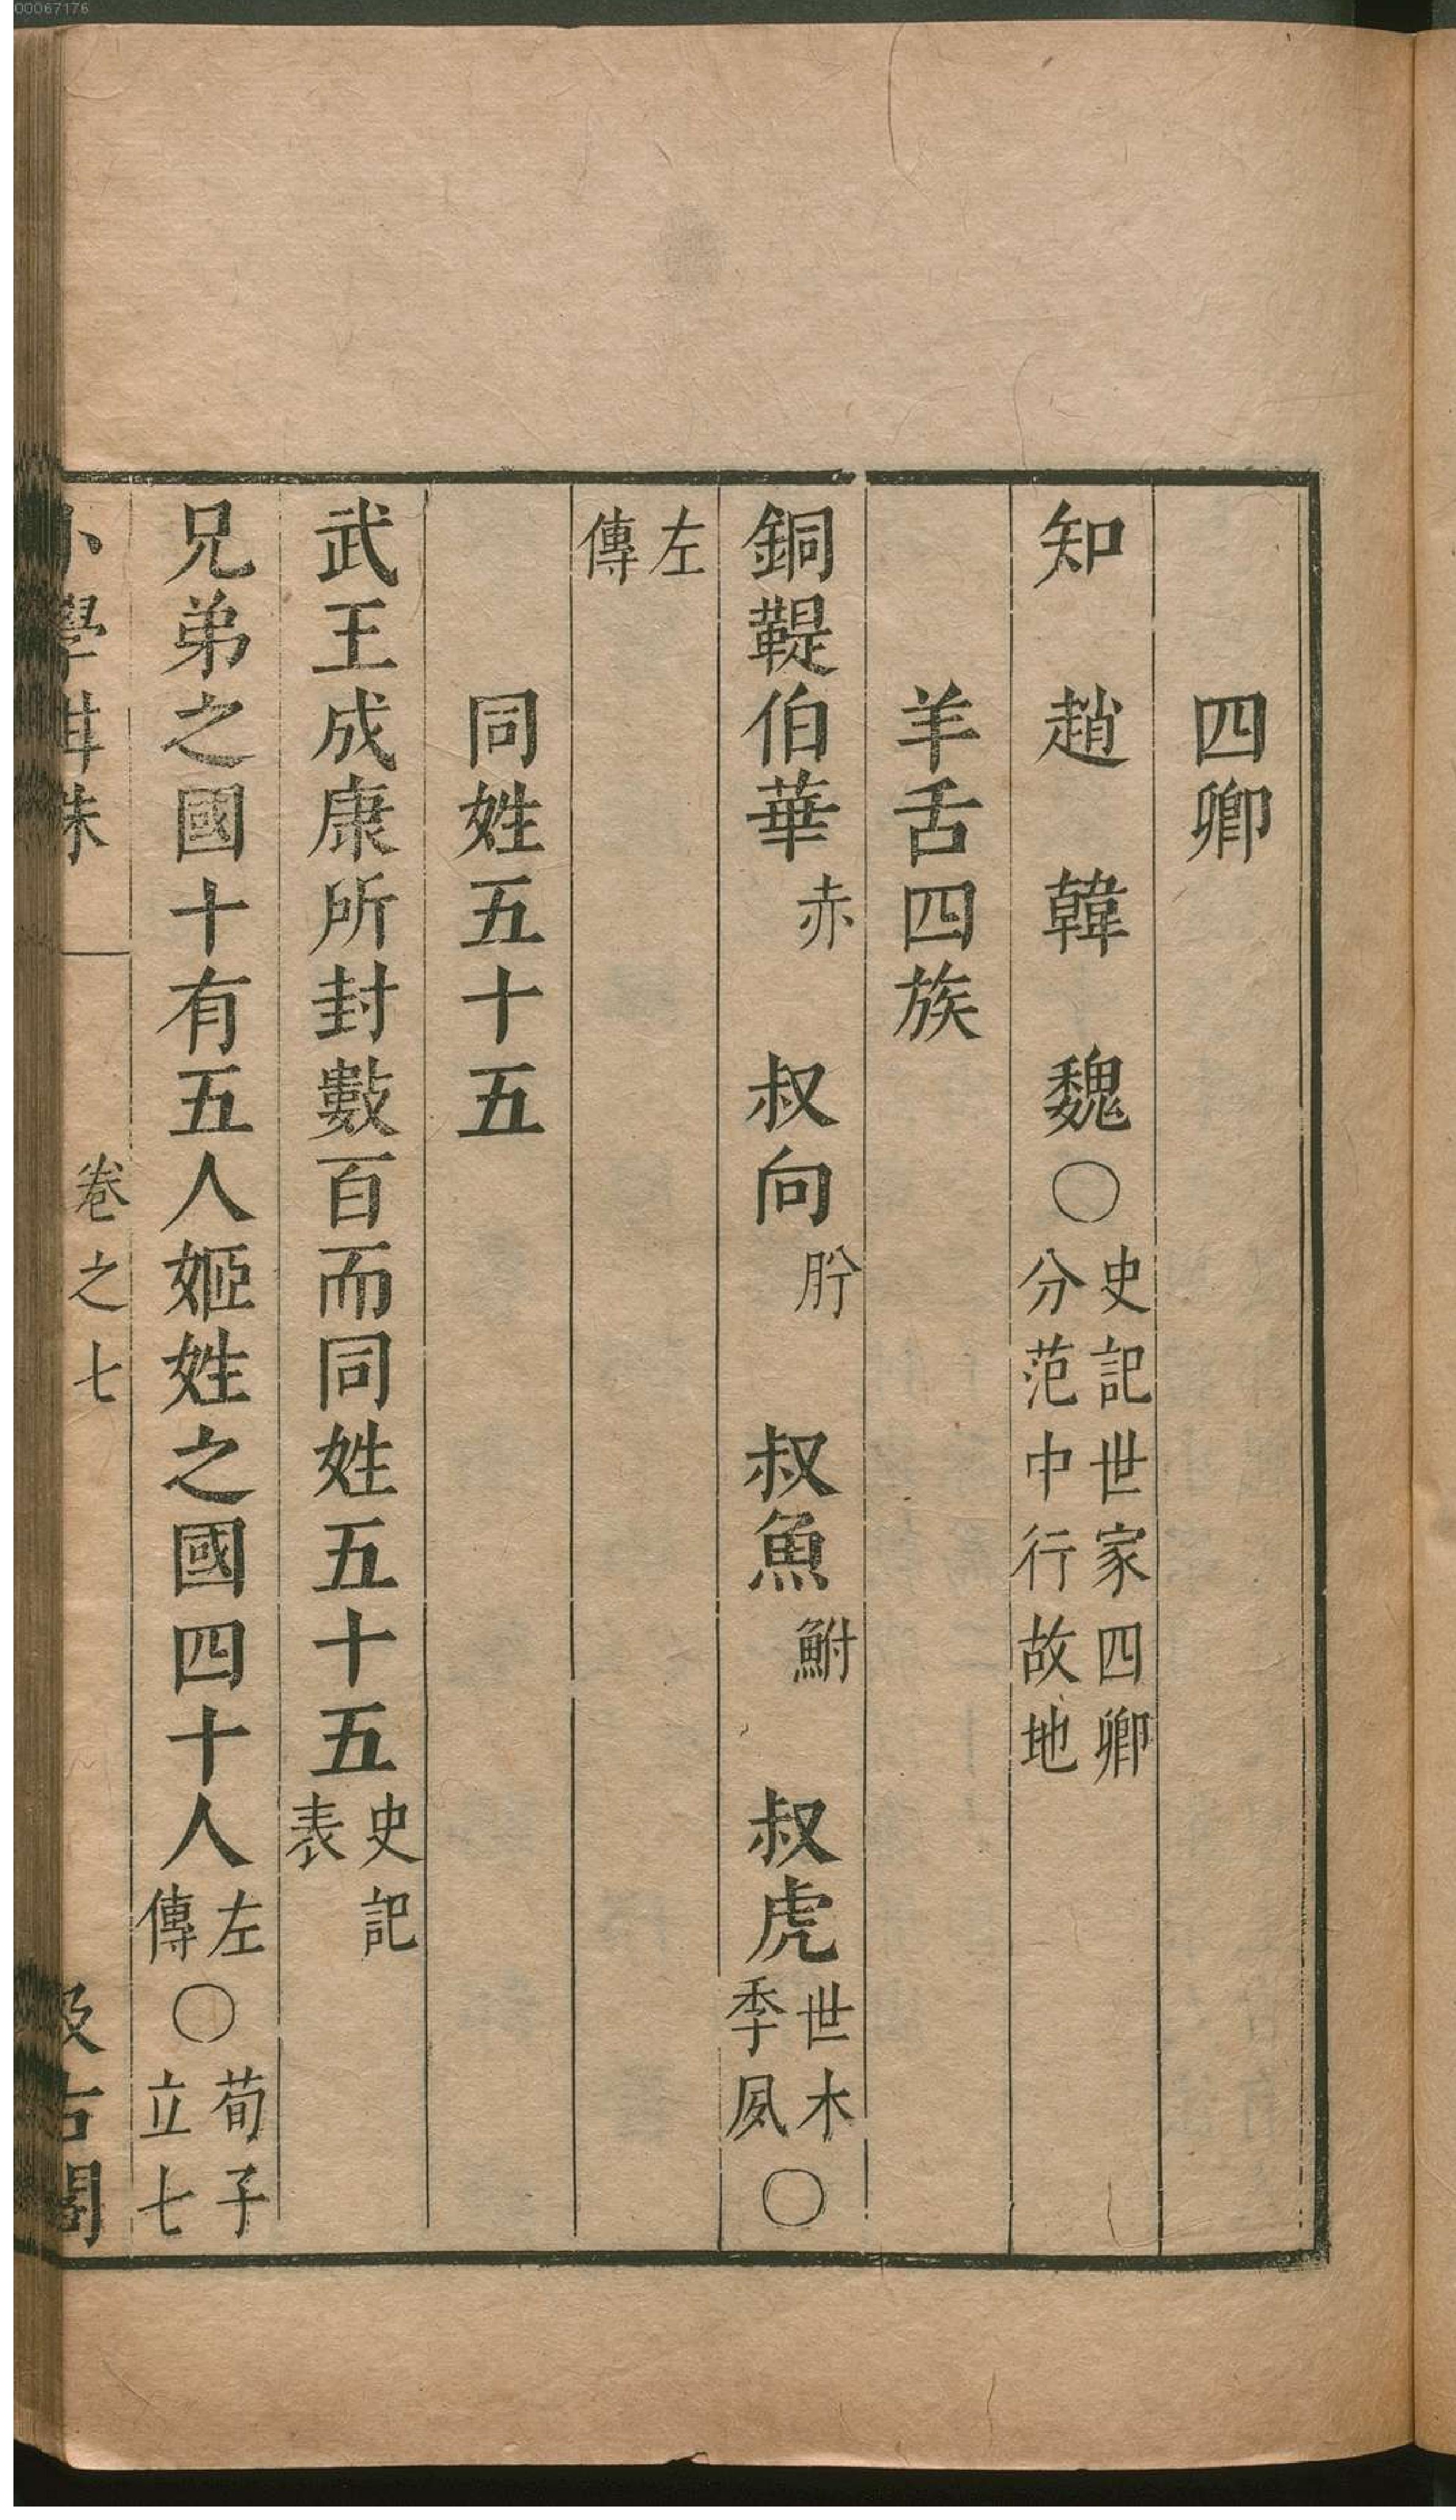 00067176
四卿
知　趙　韓　魏〇史記世家四卿分范中行故地
羊舌四族
銅鞮伯華赤　叔向肸　叔魚鮒　叔虎世木季夙〇
左傳
同姓五十五
武王成康所封數百而同姓五十五史記表
兄弟之國十有五人姬姓之國四十人左傳〇荀子立七
小學紺珠　卷之七　汲古閣